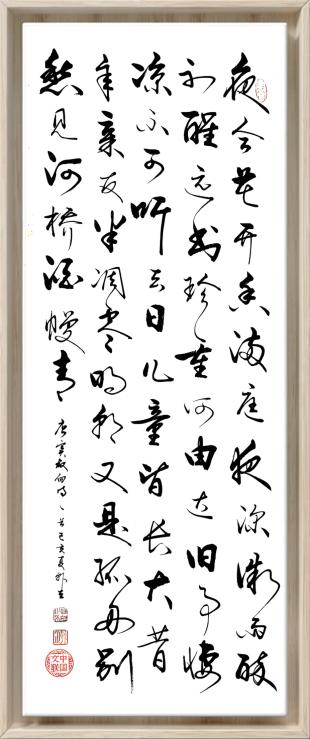 夜合花开香满庭夜深微雨醉
初醒远书珍重何由达旧事悽
凉不可听去日儿童皆长大昔
年亲友半凋零明朝又是孤舟别
愁见河桥酒幔青
唐窦叔向诗 己亥夏
中国文联